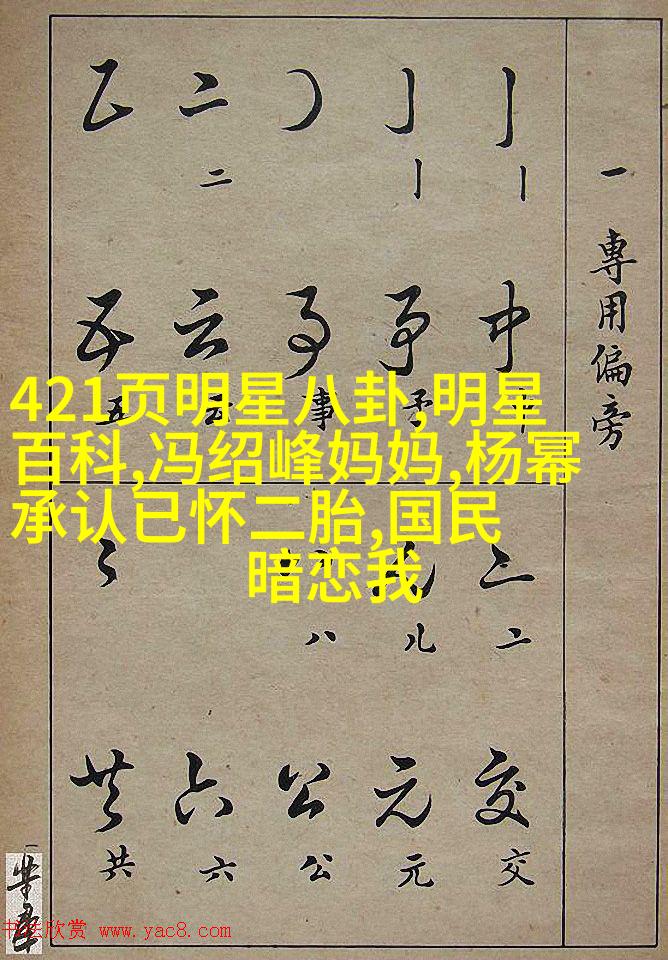 一 專用偏旁
丨 丨 二
中 予 事 云 五
事 云 五
421页明星八卦,明星
百科,冯绍峰妈妈,杨幂
承认已怀二胎,国民
暗恋我
二 儿 八
交 元 公 六 共
交 元 公 六 共
书法欣赏 www.yac8.com